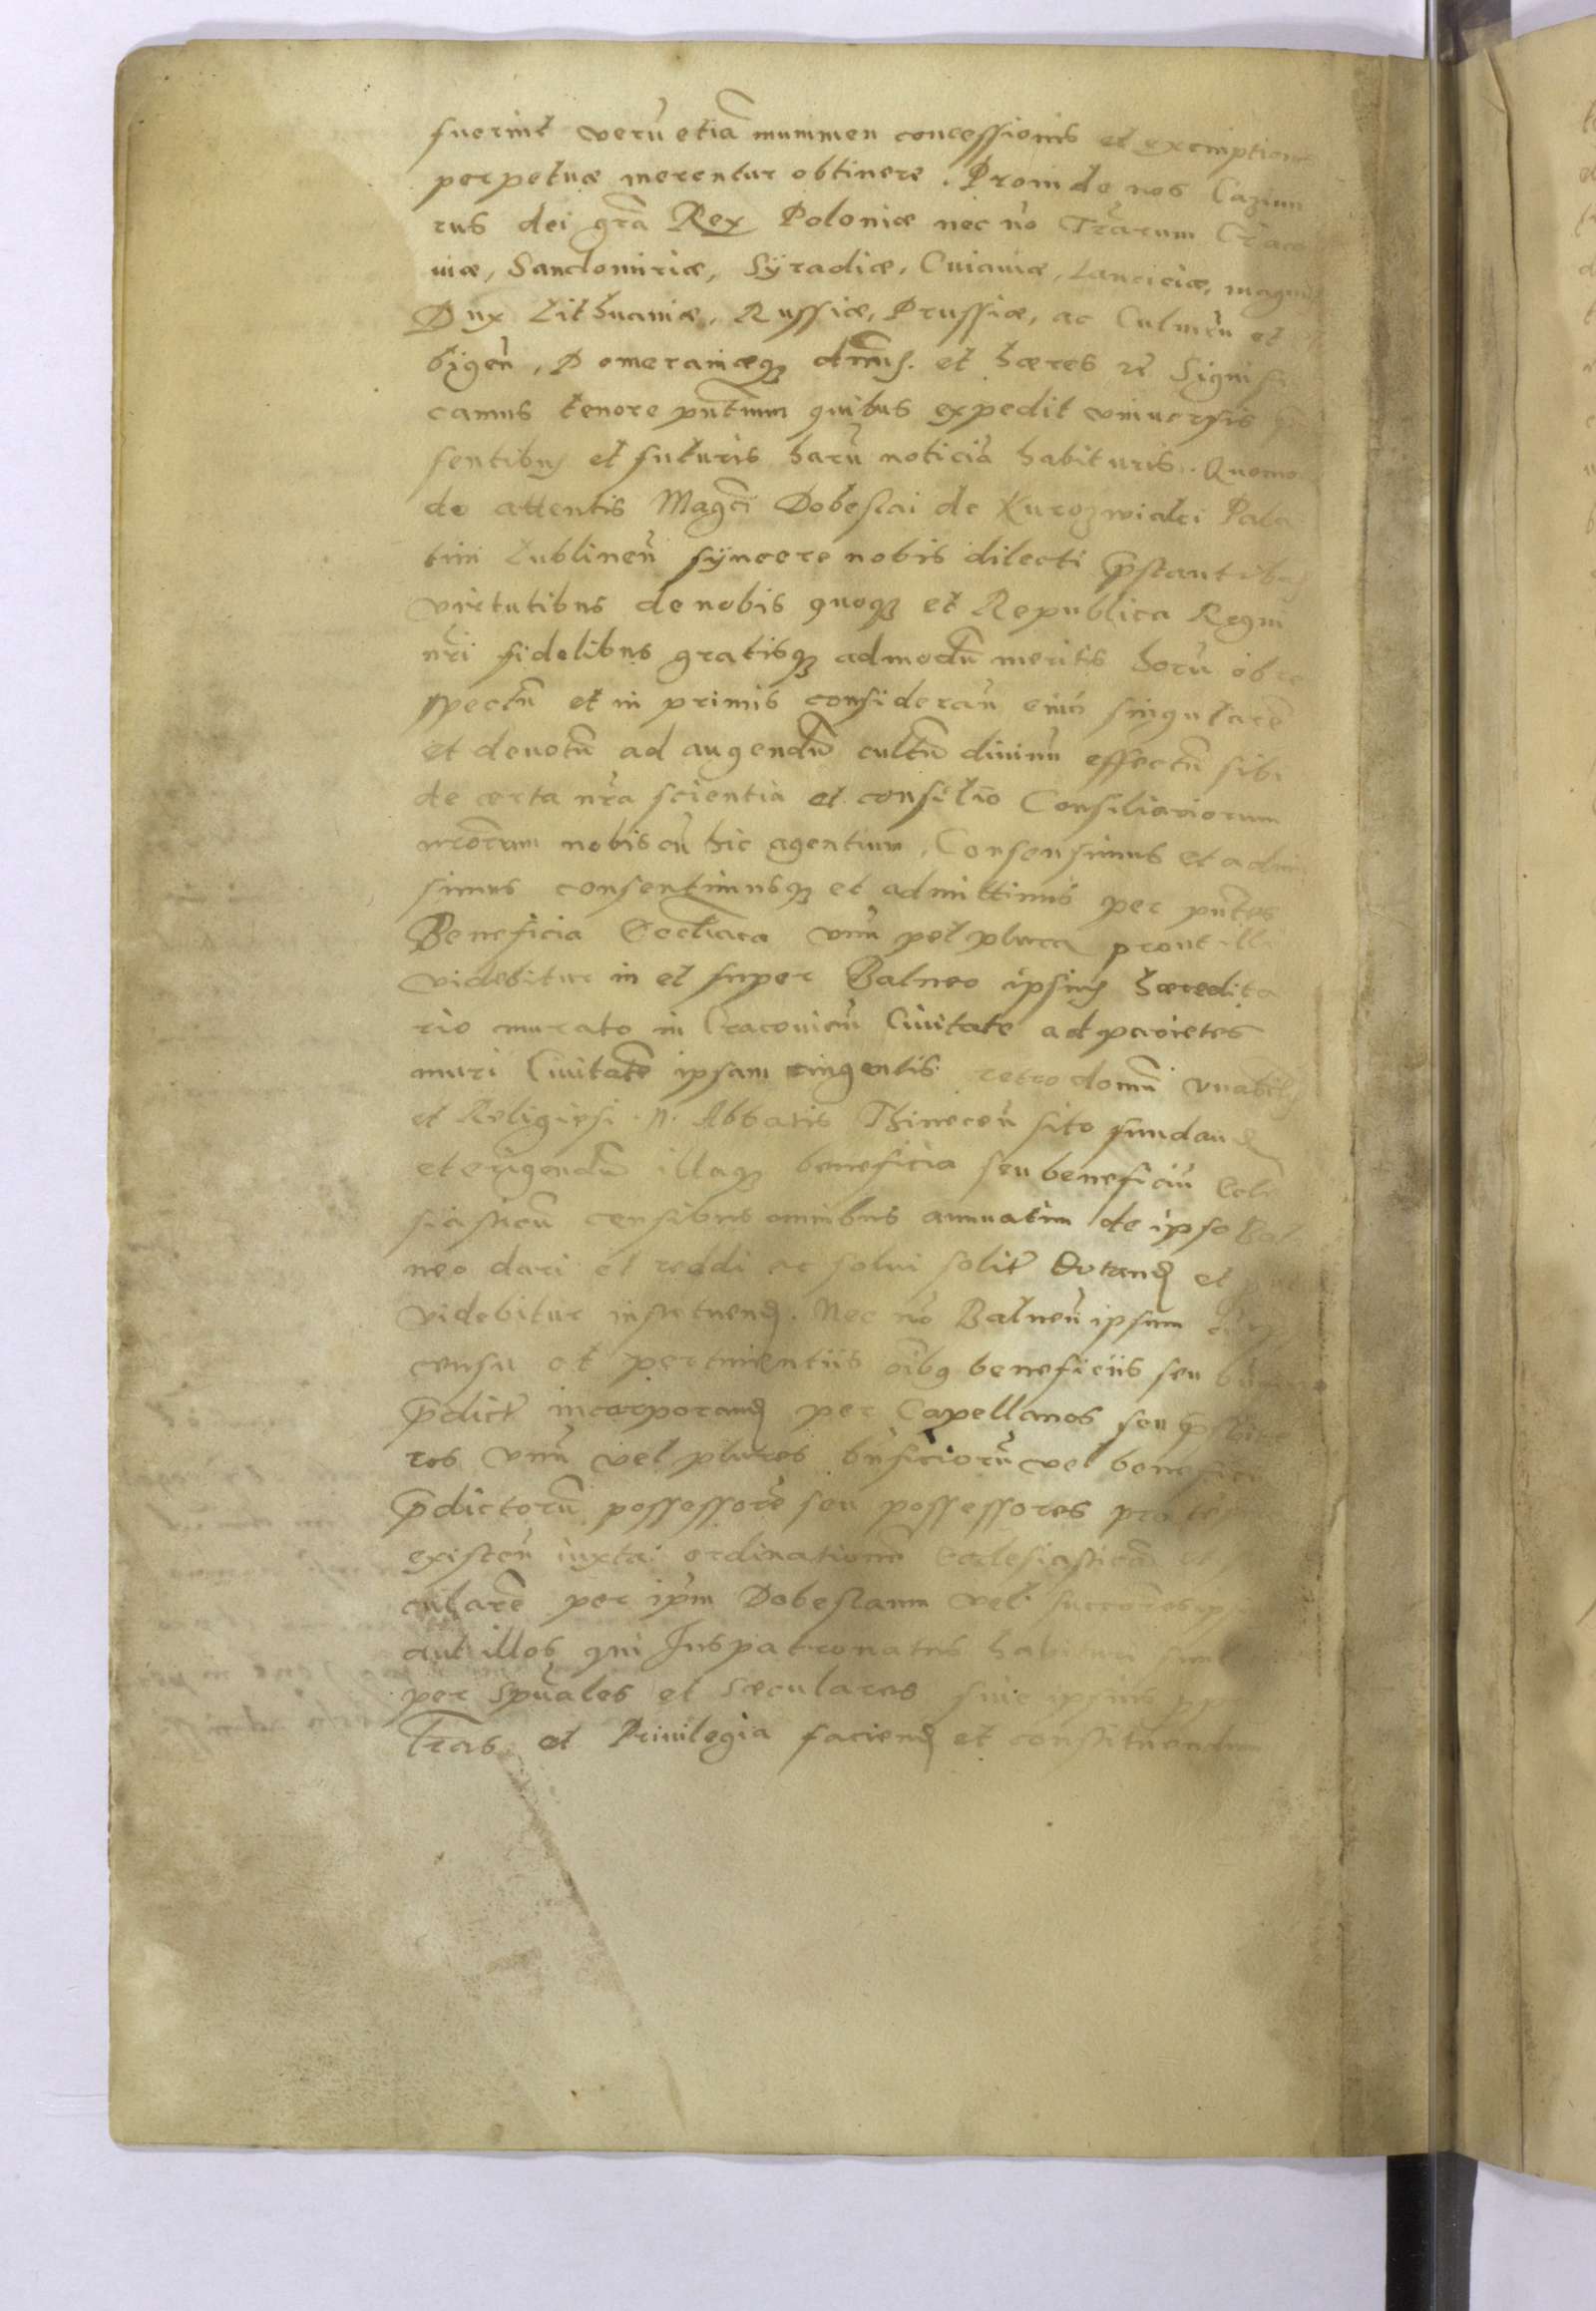 fuerint verũ etiã munimen concessionis et exemptionis
perpetuæ merentur obtinere. Proinde nos Cazimi
rus dei grã Rex Poloniæ nec nõ Trãrum Craco
uiæ, Sandomiriæ, Syradiæ, Cuiauiæ, Lanciciæ, magnus
Dux Lithuaniæ, Russiæ, Prussiæ, ac Culmeñ et
bigeñ, Pomeraniæq; dñus. et hæres &c Signifi
camus tenore pñtium quibus expedit vniuersis
sentibus et futuris harũ noticiã habituris. Quomo
do attentis Magci Dobeslai de Kurozwialci Pala
tini Lublineñ syncere nobis dilecti p̃stantibus
virtutibus de nobis quoq; et Republica Regni
nri fidelibus gratisq; admodũ meritis horũ ob re
spectũ et in primis considerañ eius singularẽ
et deuotũ ad augendũ cultũ diuinũ effectũ sibi
de certa nrã scientia et consilio Consiliariorum
nrõrum nobiscũ hic agentium, Consensimus et admi
simus consentimusq; et admittimus per pñtes
Beneficia Eccliãca vnũ vel plura prout illi
videbitur in et super Balneo ipsius hæredita
rio murato in Cracouieñ Ciuitate ad parietes
muri Ciuitatẽ ipsam cingentis retro domũ vnabilis
et Religiosi .N. Abbatis Thineceñ sito fundand
et erigendũ illaq; beneficia seu beneficiũ Eccle
siasticũ censibus omnibus annuatim de ipso Bal
neo dari et reddi ac solui solit̃ dotand et
videbitur instituend. Nec nõ Balneũ ipsum
censu et pertinentiis oĩbus beneficiis seu
p̃dict̃ incorporand per Capellanos seu p̃sbite
ros vnũ vel plures bñficiorũ vel benefici
p̃dictorũ possessorẽ seu possessores pro
existeñ iuxta ordinationem Ecclesiasticã et
cularẽ per ipm̃ Dobeslaum vel succores
aut illos qui Juspatronatus habituri sunt
per spũales et sæculares suie ipsius
Lrãs et Priuilegia faciend et constituendum